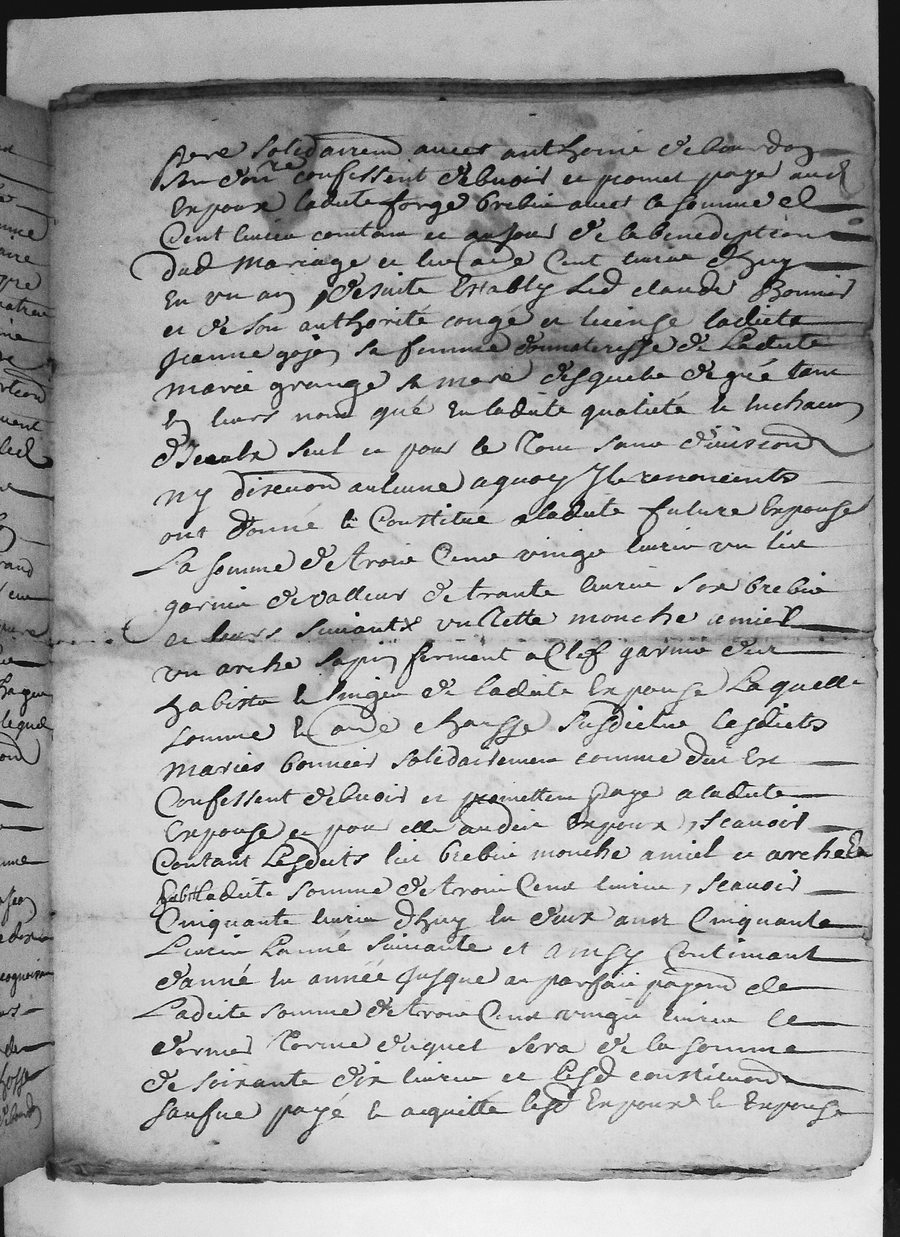 pere solidairem avec anthoine de bourdon
son oncle confessent debuoir et promet paye aud
Expoux ladicte forge brebix avec la somme de
Cent livres contant et au jour de la benediption
dud mariage et cent livres d'huy
En un an, de suite Estably led claude Bonnier
et de son authorité congé et license ladicte
jeanne sa femme donnateresse de ladicte
marie grange sa mere desquels de gré tant
En leurs nom qué En ladicte qualité et un chacun
d'iceulx seul et pour le tout sans division
ny discution aulcune a quoy Ils renoncents
ont donné et Constitué a ladicte future Expouse
La somme de trois Cent vingt livres un lict
garnie de valleur de trante livres six brebix
et leurs suivants un mouche a miel
un arche sapin ferment a Clef garnie des
habits et linges de ladicte Expouse Laquelle
somme et chausse susdictes lesdicts
mariés bonnier solidairement comme dict Est
Confessent debuoir et promettent paye a ladicte
Expouse et pour elle audict Expoux, scavoir
Contant Lesdits lict brebix mouche a miel et arche Et
habits ladicte somme de trois Cent livres, scavoir
Cinquante livres d'huy En deux ans Cinquante
Livres L'anné suivante et ainsy Continuant
d'anné En année jusque au parfaict payem de
Ladicte somme de trois Cent vingt livres le
dernier Terme duquel sera de la somme
de soixante dix livres et lesd constitution
payé et acquitté lesd Expoux et Expouse